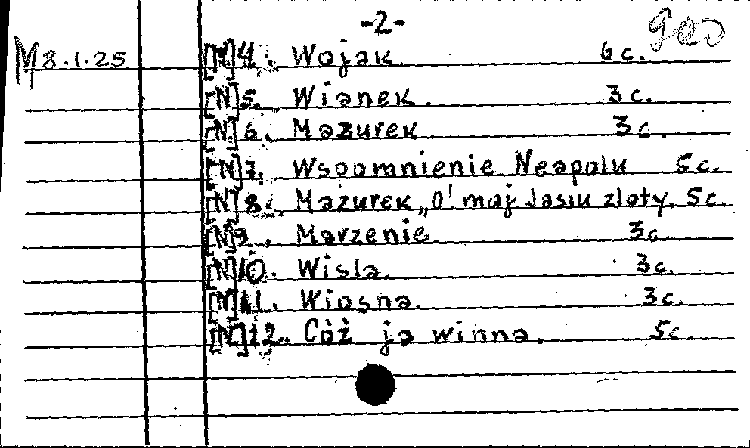 -2-
M 8.1.25 [N] 4. Wojak 6c.
[N] 5. Wianek. 3c.
[N] 6. Mazurek 3c.
[N] 7. Wspomnienie Neapolu 5c.
[N] 8. Mazurek „O! moj Jasiu zloty. 5c.
[N] 9. Marzenie 3c
[N] 10. Wisla. 3c.
[N] 11. Wiosna. 3c.
[N] 12. Cóż ja winna. 5c.